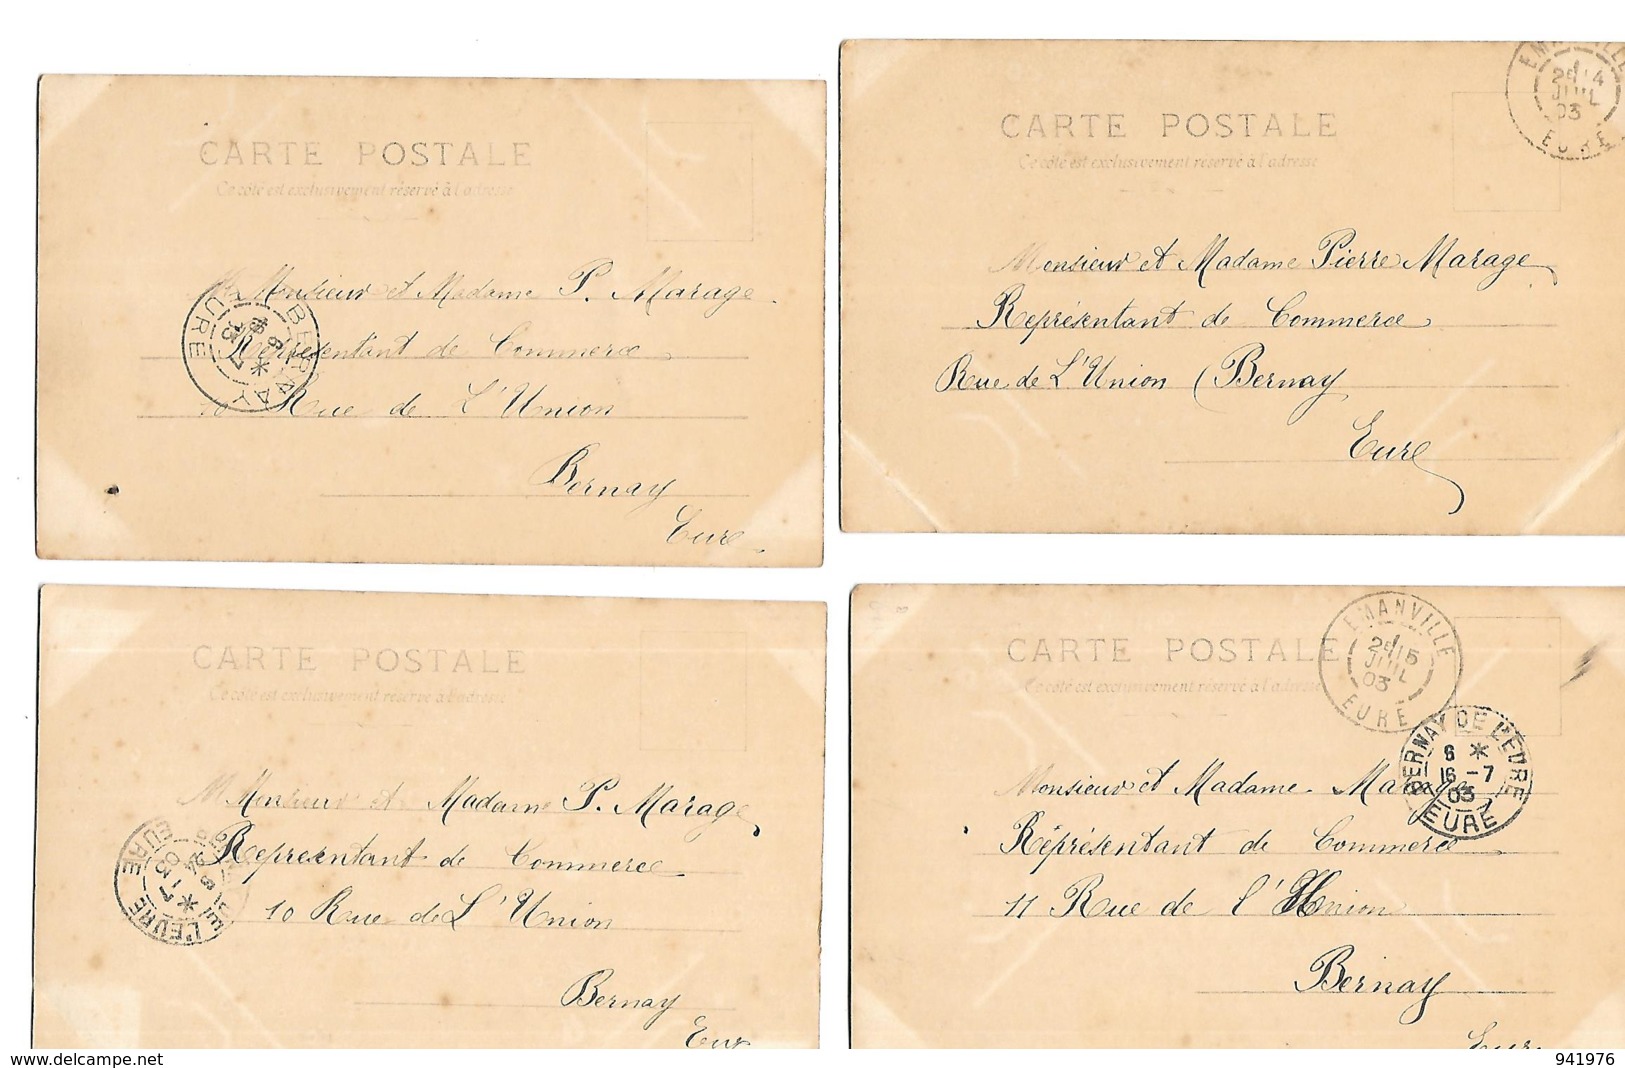 CARTE POSTALE
Ce côté est exclusivement réservé à l'adresse
Monsieur et Madame P. Marage
Représentant de Commerce
10 Rue de L'Union
Bernay
Eure
BERNAY
EURE
CARTE POSTALE
Ce côté est exclusivement réservé à l'adresse
EMANVILLE
2E 14
JUIL
03
EURE
Monsieur et Madame Pierre Marage
Représentant de Commerce
Rue de L'Union (Bernay
Eure
CARTE POSTALE
Ce côté est exclusivement réservé à l'adresse
Monsieur et Madame P. Marage
Représentant de Commerce
10 Rue de L'Union
Bernay
Eure
DE L'EURE
EURE
CARTE POSTALE
Ce côté est exclusivement réservé à l'adresse
EMANVILLE
2E 15
JUIL
03
EURE
BERNAY DE L'EURE
6 *
16 -7
03
EURE
Monsieur et Madame Marage
Représentant de Commerce
11 Rue de l'Union
Bernay
Eure
www.delcampe.net
941976